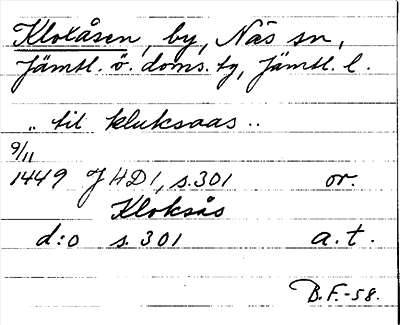 Klokåsen, by, Näs sn,
Jämtl. ö. doms. tg, Jämtl. l.
.. til kluksaas ..
9/11
1449 JHD1, s.301 or.
Kloksås
d:o s. 301 a.t.
B.F.-58.